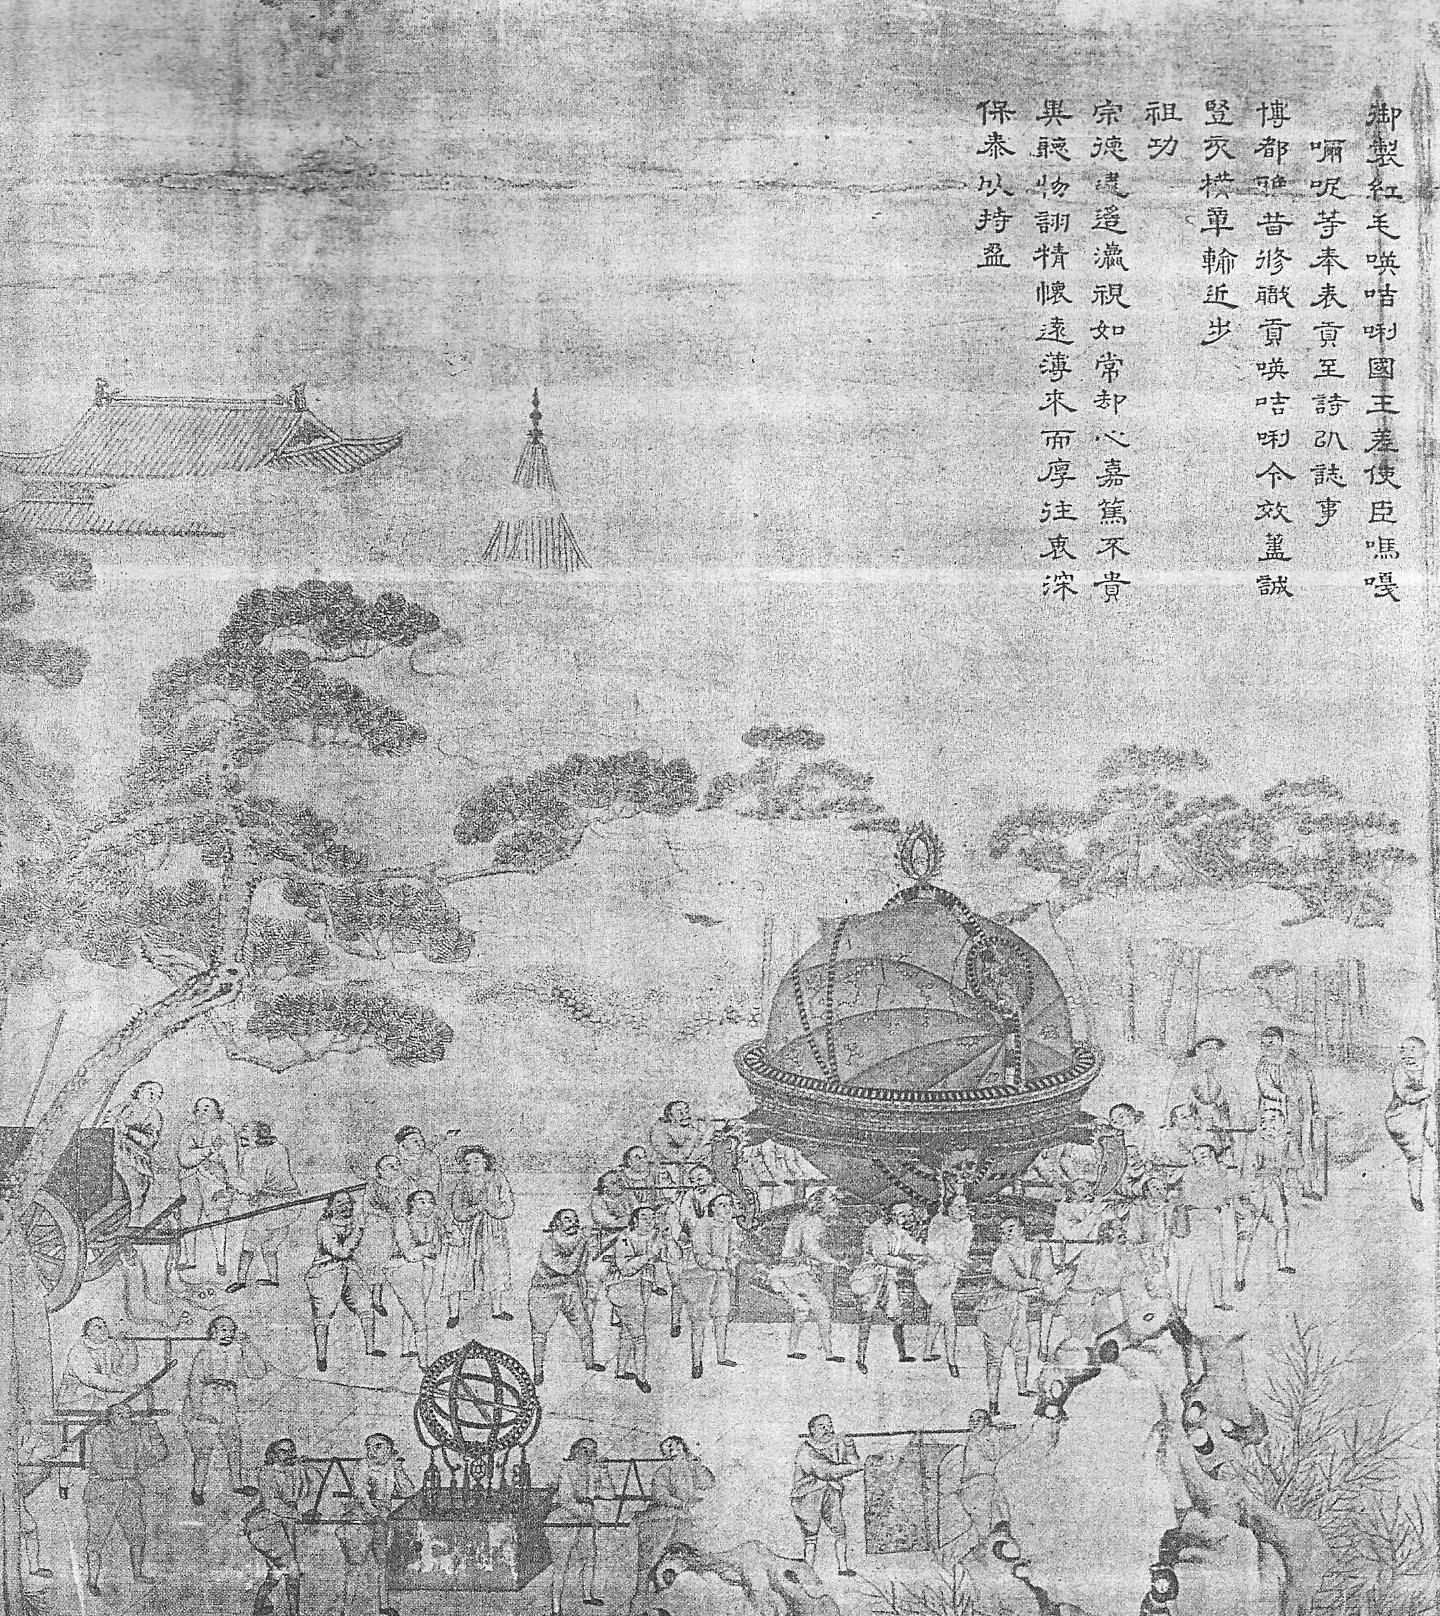 御製紅毛𠸄咭唎國王差使臣嗎嘎
呢等奉表貢至詩以誌事
博都雅昔修職貢𠸄咭唎今效藎誠
豎亥橫章輸近步
祖功
宗德逮遙瀛視如常却心嘉篤不貴
異聽物詡精懷遠薄來而厚往衷深
保泰以持盈